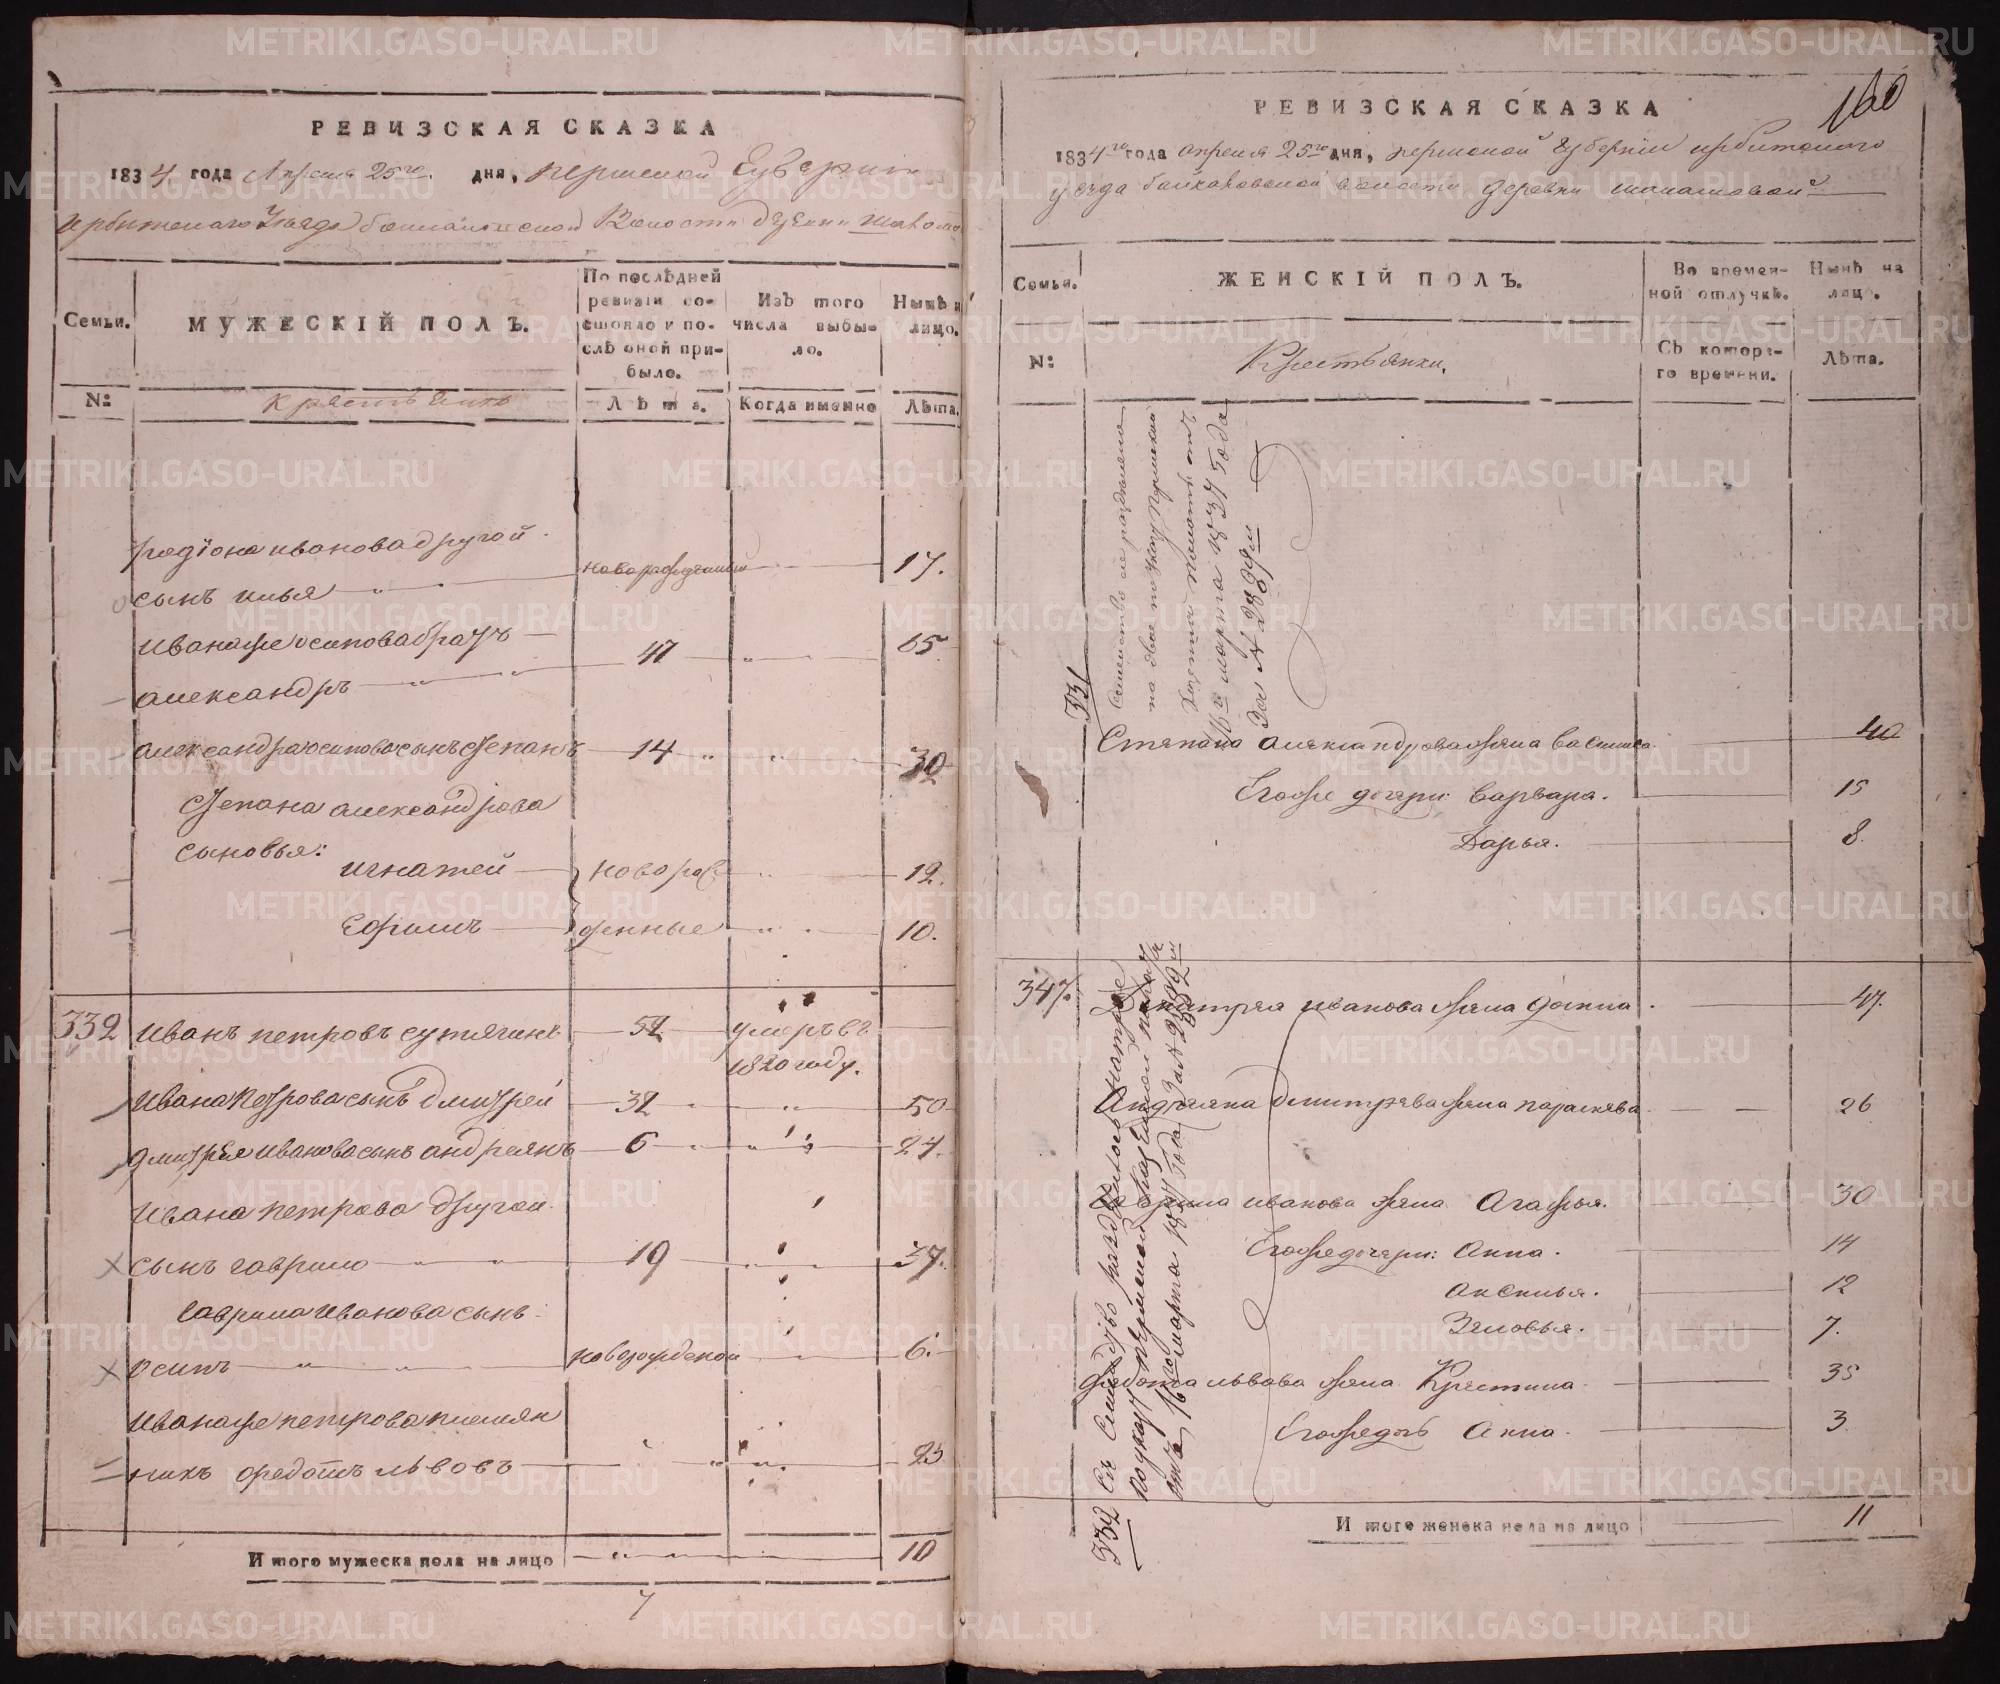 РЕВИЗСКАЯ СКАЗКА
1834 года Апреля 25го. дня, пермской Губернии
ирбитского Уезда Волости
Семьи.
МУЖЕСКІЙ ПОЛЪ.
По послѣдней ревизіи состояло и послѣ оной прибыло.
Изъ того числа выбыло.
Нынѣ на лицо.
№
крестьянъ
Лѣта.
Когда именно
Лѣта.
родіона иванова другой
сынъ илья новорожденный 17.
Ивана же осипова братъ
александръ 47 65
александра осипова сынъ степанъ 14 32
степана александрова
сыновья:
игнатей новорож 12.
Ефимъ денные 10.
332 Иванъ петровъ сутягинъ 52 умеръ въ
1820 году.
Ивана Петрова сынъ дмитрей 32 50
дмитрея иванова сынъ андреянъ 6 24.
Ивана петрова другой
сынъ гаврило 19 37.
гаврила Иванова сынъ
осипъ новорожденой 6.
Ивана же петрова племян
никъ федотъ львовъ 23
Итого мужеска пола на лицо 10
160
РЕВИЗСКАЯ СКАЗКА
1834го года апреля 25го дня, пермской губернии ирбитского
уезда волости деревни
Семьи.
ЖЕНСКІЙ ПОЛЪ.
Во временной отлучкѣ.
Нынѣ на лицо.
№
Крестьянки.
Съ котораго времени.
Лѣта.
331 Семейство сие разделено
на двое по указу Пермской
Казенной палаты отъ
16го марта 1837 Года
за № 2869м
Степана александрова жена василиса. 40
Егоже дочери: варвара. 15
Дарья. 8.
347. Дмитрея иванова жена домна 47.
Андреяна дмитрева жена парасковья 26
Гаврила иванова жена Агафья. 30
Егоже дочери: Анна. 14
Аксинья. 12
Зиновья. 7.
Федота львова жена Крестина 35
Егоже дочь Анна. 3
332 разделено на трое
по указу пермской Казенной палаты
отъ 16го марта 1837 Года за № 2869м
Итого женска пола на лицо 11
METRIKI.GASO-URAL.RU